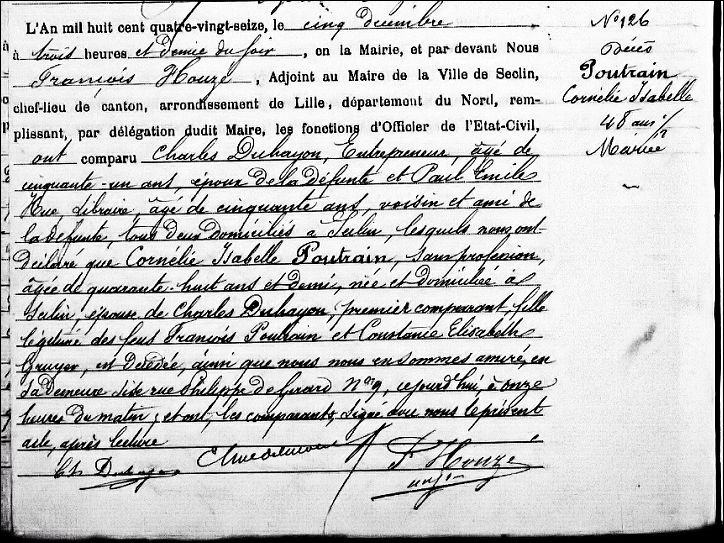 L'An mil huit cent quatre-vingt-seize, le cinq décembre
à trois heures et demie du soir, en la Mairie, et par devant Nous
François Houzé, Adjoint au Maire de la Ville de Seclin,
chef-lieu de canton, arrondissement de Lille, département du Nord, rem-
plissant, par délégation dudit Maire, les fonctions d'Officier de l'Etat-Civil,
ont comparu Charles Duhayon, Entrepreneur, âgé de
cinquante-un ans, époux de la défunte et Paul Emile
Hue, Libraire, âgé de cinquante ans, voisin et ami de
la défunte, tous deux domiciliés à Seclin, lesquels nous ont
déclaré que Cornélie Isabelle Poutrain, sans profession,
âgée de quarante-huit ans et demi, née et domiciliée à
Seclin, épouse de Charles Duhayon, premier comparant, fille
légitime des feus François Poutrain et Constance Elisabeth
Gruyer, est décédée, ainsi que nous nous en sommes assuré, en
sa demeure sise rue Philippe de Girard Nº 9, cejourd'hui à onze
heures du matin; et ont, les comparants, signé avec nous le présent
acte, après lecture
Ch Duhayon
F Houzé
Nº 126
Décès
Poutrain
Cornélie Isabelle
48 ans 1/2
Mariée